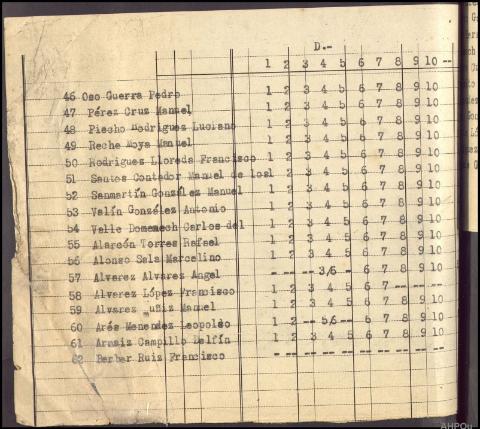 D.-
1 2 3 4 5 6 7 8 9 10 --
46 Oso Guerra Pedro 1 2 3 4 5 6 7 8 9 10
47 Pérez Cruz Manuel 1 2 3 4 5 6 7 8 9 10
48 Piecho Rodriguez Luciano 1 2 3 4 5 6 7 8 9 10
49 Reche Moya Manuel 1 2 3 4 5 6 7 8 9 10
50 Rodriguez Lloreda Francisco 1 2 3 4 5 6 7 8 9 10
51 Santos Contador Manuel de los 1 2 3 4 5 6 7 8 9 10
52 Sanmartín González Manuel 1 2 3 4 5 6 7 8 9 10
53 Valín González Antonio 1 2 3 4 5 6 7 8 9 10
54 Valle Domenech Carlos del 1 2 3 4 5 6 7 8 9 10
55 Alarcón Torres Rafael 1 2 3 4 5 6 7 8 9 10
56 Alonso Sala Marcelino 1 2 3 4 5 6 7 8 9 10
57 Alvarez Alvarez Angel -- -- -- 3,6 -- 6 7 8 9 10
58 Alvarez López Francisco 1 2 3 4 5 6 7 -- -- --
59 Alvarez Manuel 1 2 3 4 5 6 7 8 9 10
60 Arés Menendez Leopoldo 1 2 -- 5,6 -- 6 7 8 9 10
61 Arnaiz Campillo Delfín 1 2 3 4 5 6 7 8 9 10
62 Barbar Ruiz Francisco -- -- -- -- -- -- -- -- -- --
AHPOu